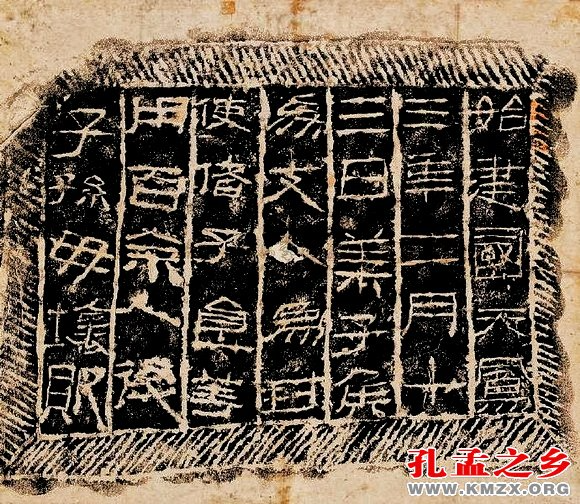 始建國天鳳
三年二月十
三日萊子侯
為支人為封
使偖子食等
用百余人後
子孫毋壞敗
孔孟之乡
WWW.KMZX.ORG